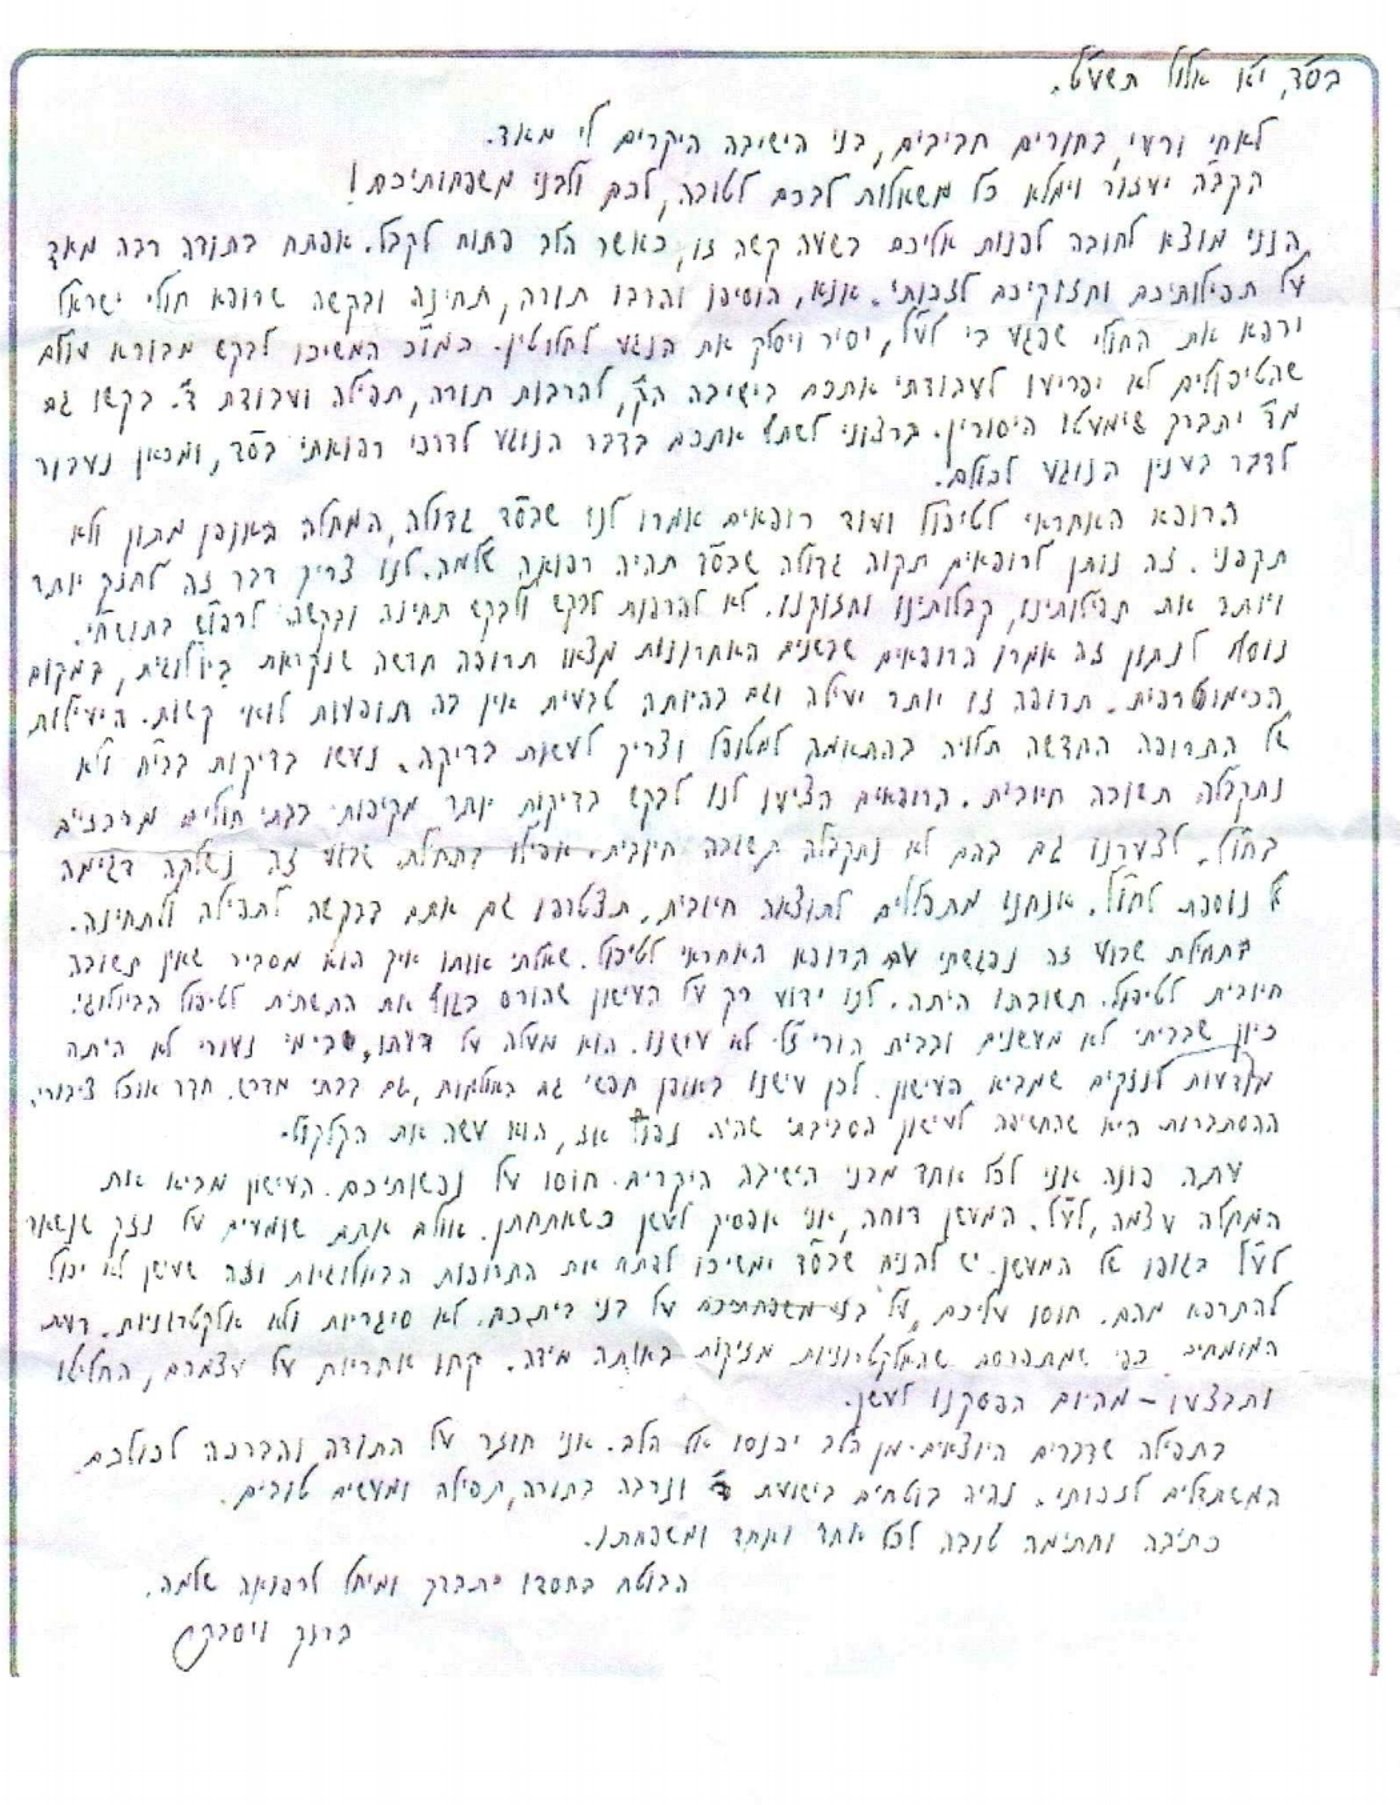 בס"ד, י"ו אלול תשע"ט.
לאחי ורעי, בחורים חביבים, בני הישיבה היקרים לי מאד.
הקב"ה יעזור וימלא כל משאלות לבכם לטובה, לכם ולבני משפחותיכם!
הנני מוצא לחובה לפנות אליכם בשעה קשה זו, כאשר הלב פתוח לקבל. אפתח בתודה רבה מאד
על תפילותיכם וחזוקיכם לזכותי. אנא, הוסיפו והרבו תורה, תחינה ובקשה שרופא חולי ישראל
ירפא את החולי שפגע בי ל"על, יסיר ויסלק את הנגע לחלוטין. כמו"כ המשיכו לבקש מבורא עולם
שהטיפולים לא יפריעו לעבודתי אתכם בישיבה הק', להרבות תורה, תפילה ועבודת ד'. בקשו גם
מד' יתברך שימעטו היסורין. ברצוני לשתף אתכם בדבר הנוגע לדרכי רפואתי בס"ד, ומכאן נעבור
לדבר בענין הנוגע לכולם.
הרופא האחראי לטיפול ועוד רופאים אמרו לנו שבס"ד גדולה, המחלה באופן מתון ולא
תקפני. זה נותן לרופאים תקוה גדולה שבס"ד תהיה רפואה שלמה. לנו צריך דבר זה לחזק יותר
ויותר את תפילותינו, קבלותינו וחזוקנו. לא להרפות לבקש ולבקש תחינה ובקשה לרפו"ש בתושח"י.
נוסף לנתון זה אמרו הרופאים שבשנים האחרונות מצאו תרופה חדשה שנקראת ביולוגית, במקום
הכימוטרפית. תרופה זו יותר יעילה וגם בהיותה טבעית אין בה תופעות לואי קשות. היעילות
של התרופה החדשה תלויה בהתאמה למטופל וצריך לעשות בדיקה. נעשו בדיקות בבי"ח ולא
נתקבלה תשובה חיובית. הרופאים הציעו לנו לבקש בדיקות יותר מקיפות בבתי חולים מרכזיים
בחו"ל. לצערנו גם בהם לא נתקבלה תשובה חיובית. אפילו בתחלת שבוע זה נשלחה דגימה
נוספת לחו"ל. אנחנו מתפללים לתוצאה חיובית. תצטרפו גם אתם בבקשה לתפילה ולתחינה.
בתחילת שבוע זה נפגשתי עם הרופא האחראי לטיפול. שאלתי אותו איך הוא מסביר שאין תשובה
חיובית לטיפול. תשובתו היתה. לנו ידוע רק על העישון שהורס בגוף את התשתית לטיפול הביולוגי.
כיון שבביתי לא מעשנים ובבית הורי ז"ל לא עישנו. הוא מעלה על דעתו, שבימי נעורי לא היתה
מודעות לנזקים שמביא העישון. לכן עישנו באופן חפשי גם באולמות, גם בבתי מדרש. חדר אוכל ציבורי.
ההסתברות היא שהחשיפה לעישון הסביבתי שהיה נפוץ אז, הוא עשה את הקלקול.
עתה פונה אני לכל אחד מבני הישיבה היקרים. חוסו על נפשותיכם. העישון מביא את
המחלה עצמה, ל"על. המעשן דוחה, אני אפסיק לעשן כשאתחתן. אולם אתם שומעים על נזק שנשאר
ל"על בגופו של המעשן. יש להניח שבס"ד ימשיכו לפתח את התרופות הביולוגיות וזה שעישן לא יכול
להתרפא מהם. חוסו עליכם, על בני משפחתיכם על בני ביתכם. לא סיגריות ולא אלקטרוניות. דעת
המומחים כפי שמתפרסם שהאלקטרוניות מזיקות באותה מידה. קחו אחריות על עצמכם, החליטו
ותבצעו – מהיום הפסקנו לעשן.
בתפילה שדברים היוצאים מן הלב יכנסו אל הלב. אני חוזר על התודה והברכה לכולכם
המשתדלים לזכותי. נהיה בוטחים בישועת ד' ונרבה בתורה, תפילה ומעשים טובים.
כתיבה וחתימה טובה לכל אחד ואחד ומשפחתו.
הבוטח בחסדו יתברך ומיחל לרפואה שלמה.
ברוך ויסבקר